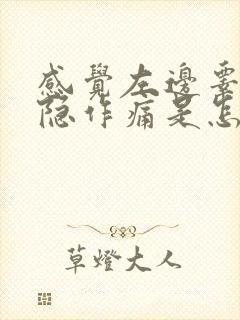 感覺左邊
隐作痛是怎
草燈大人